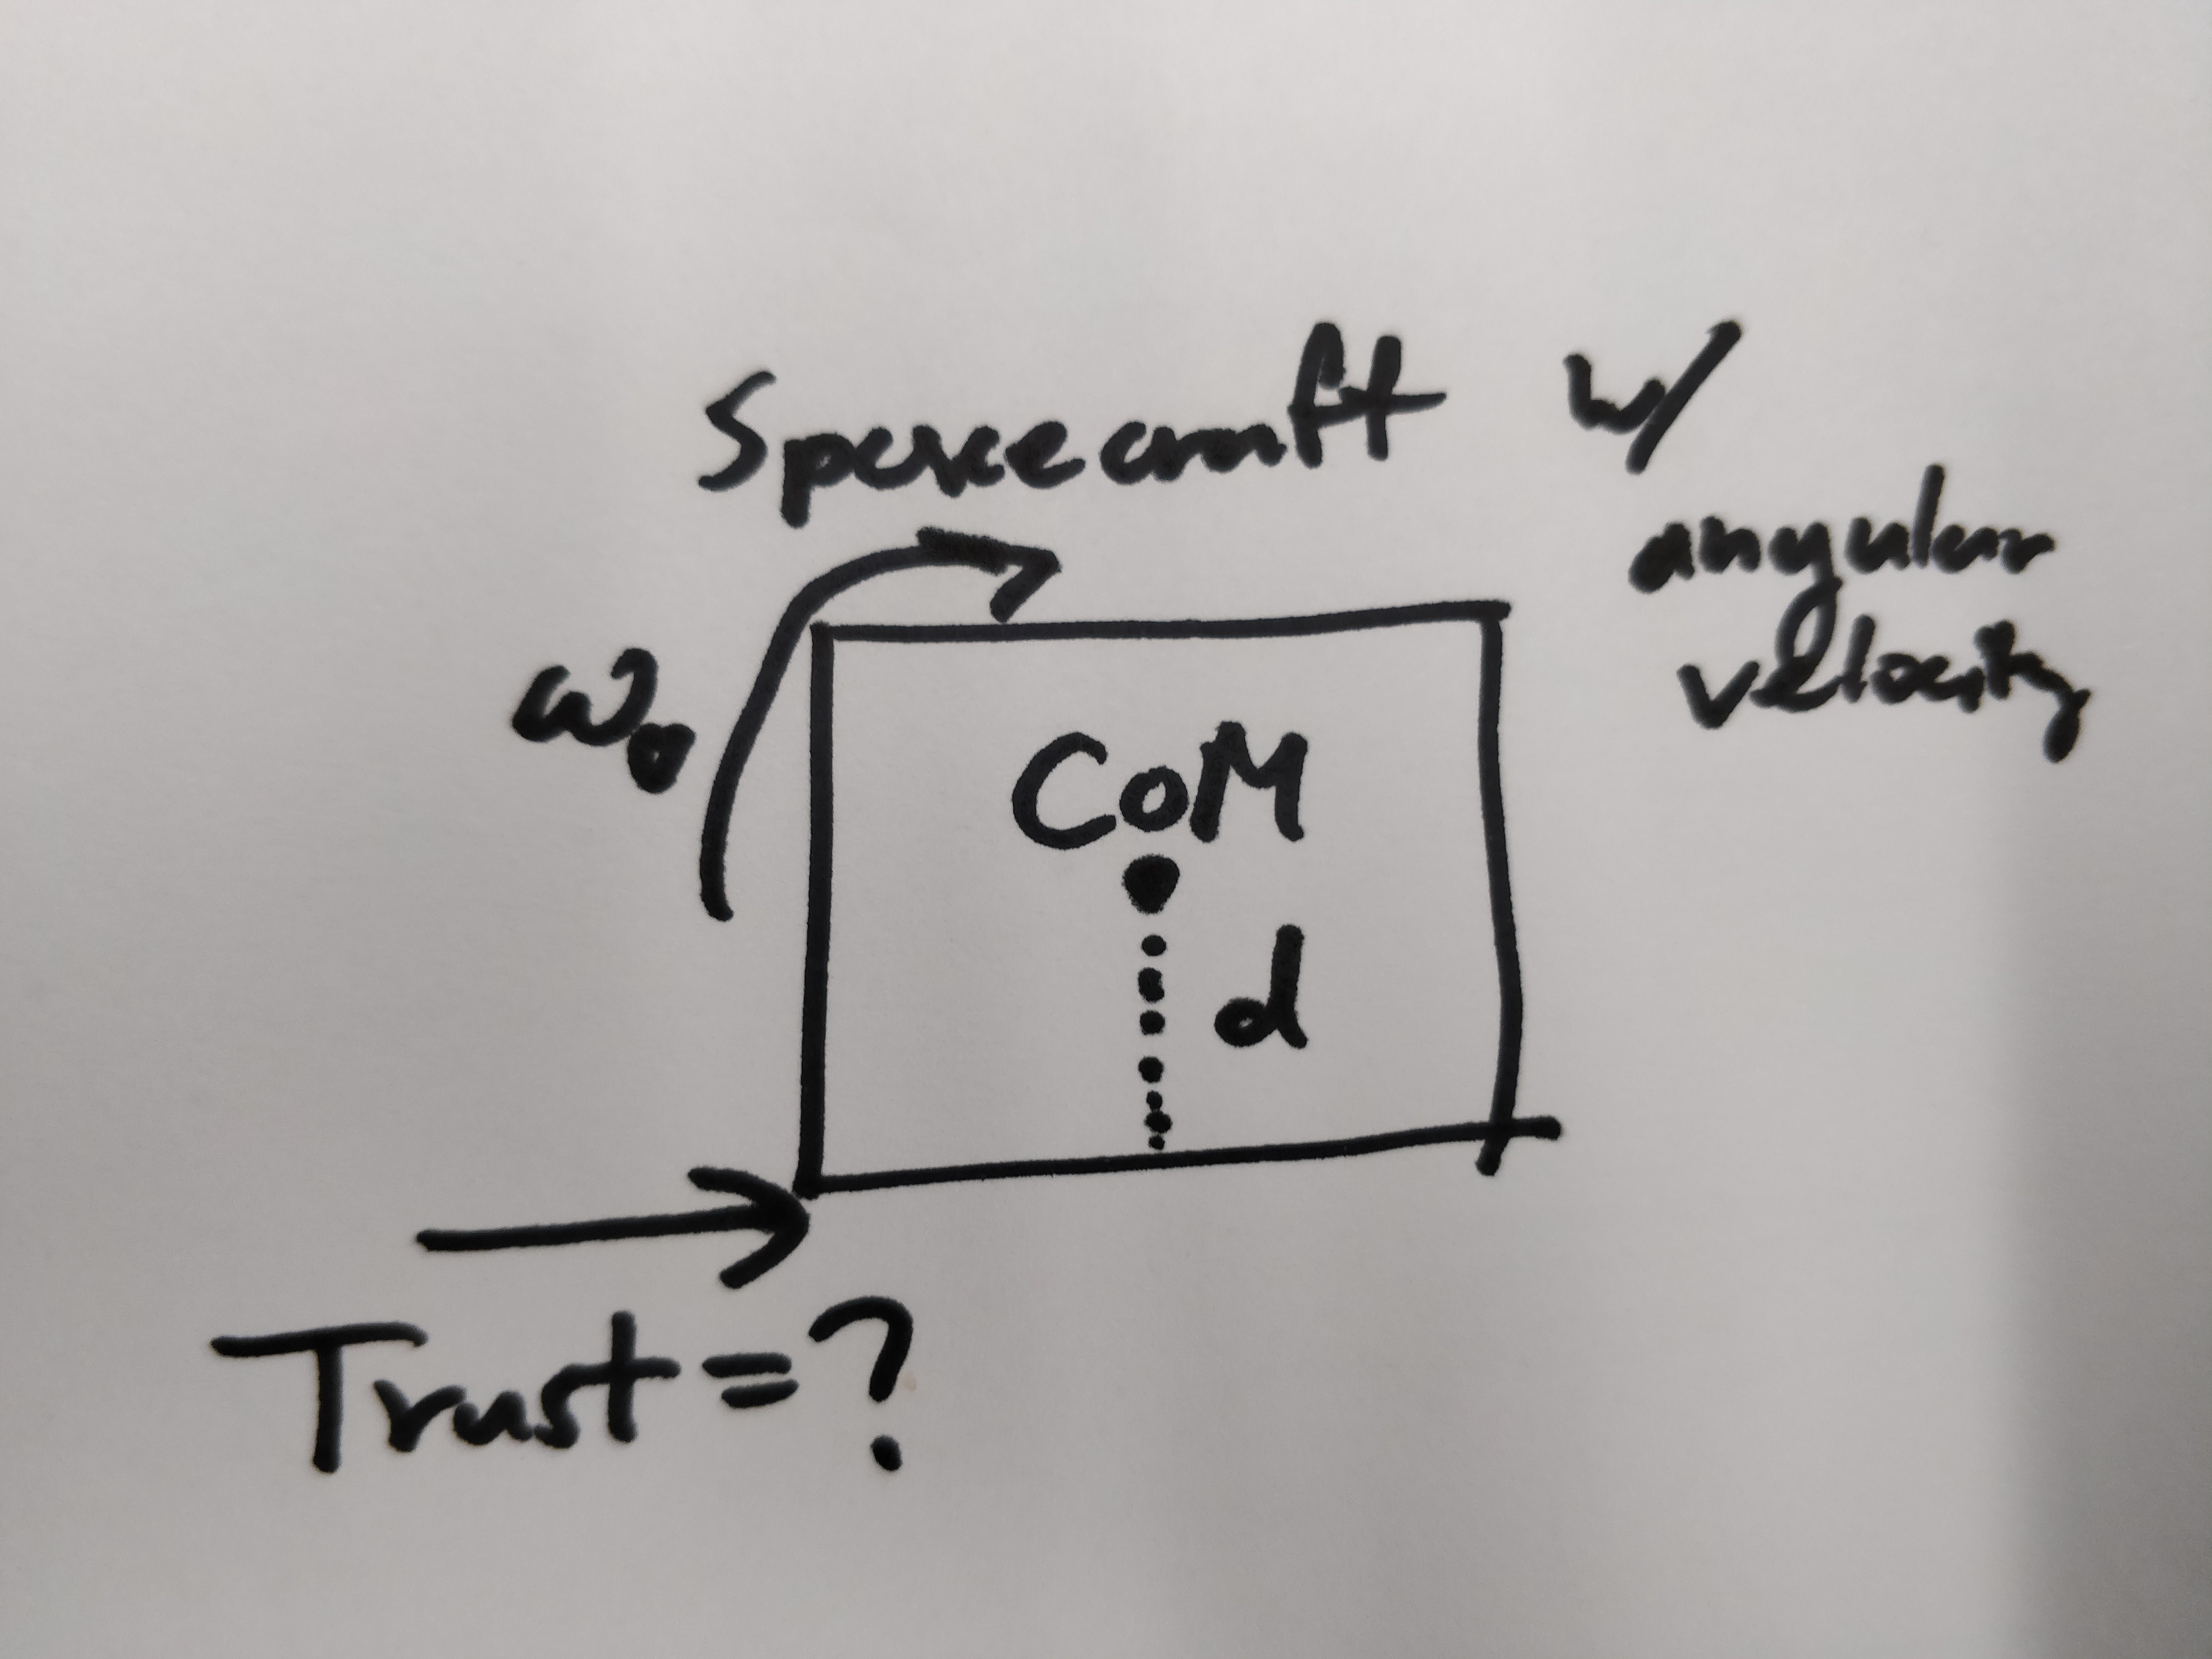 Spacecraft w/
angular
velocity
ω₀
CoM
d
Trust = ?